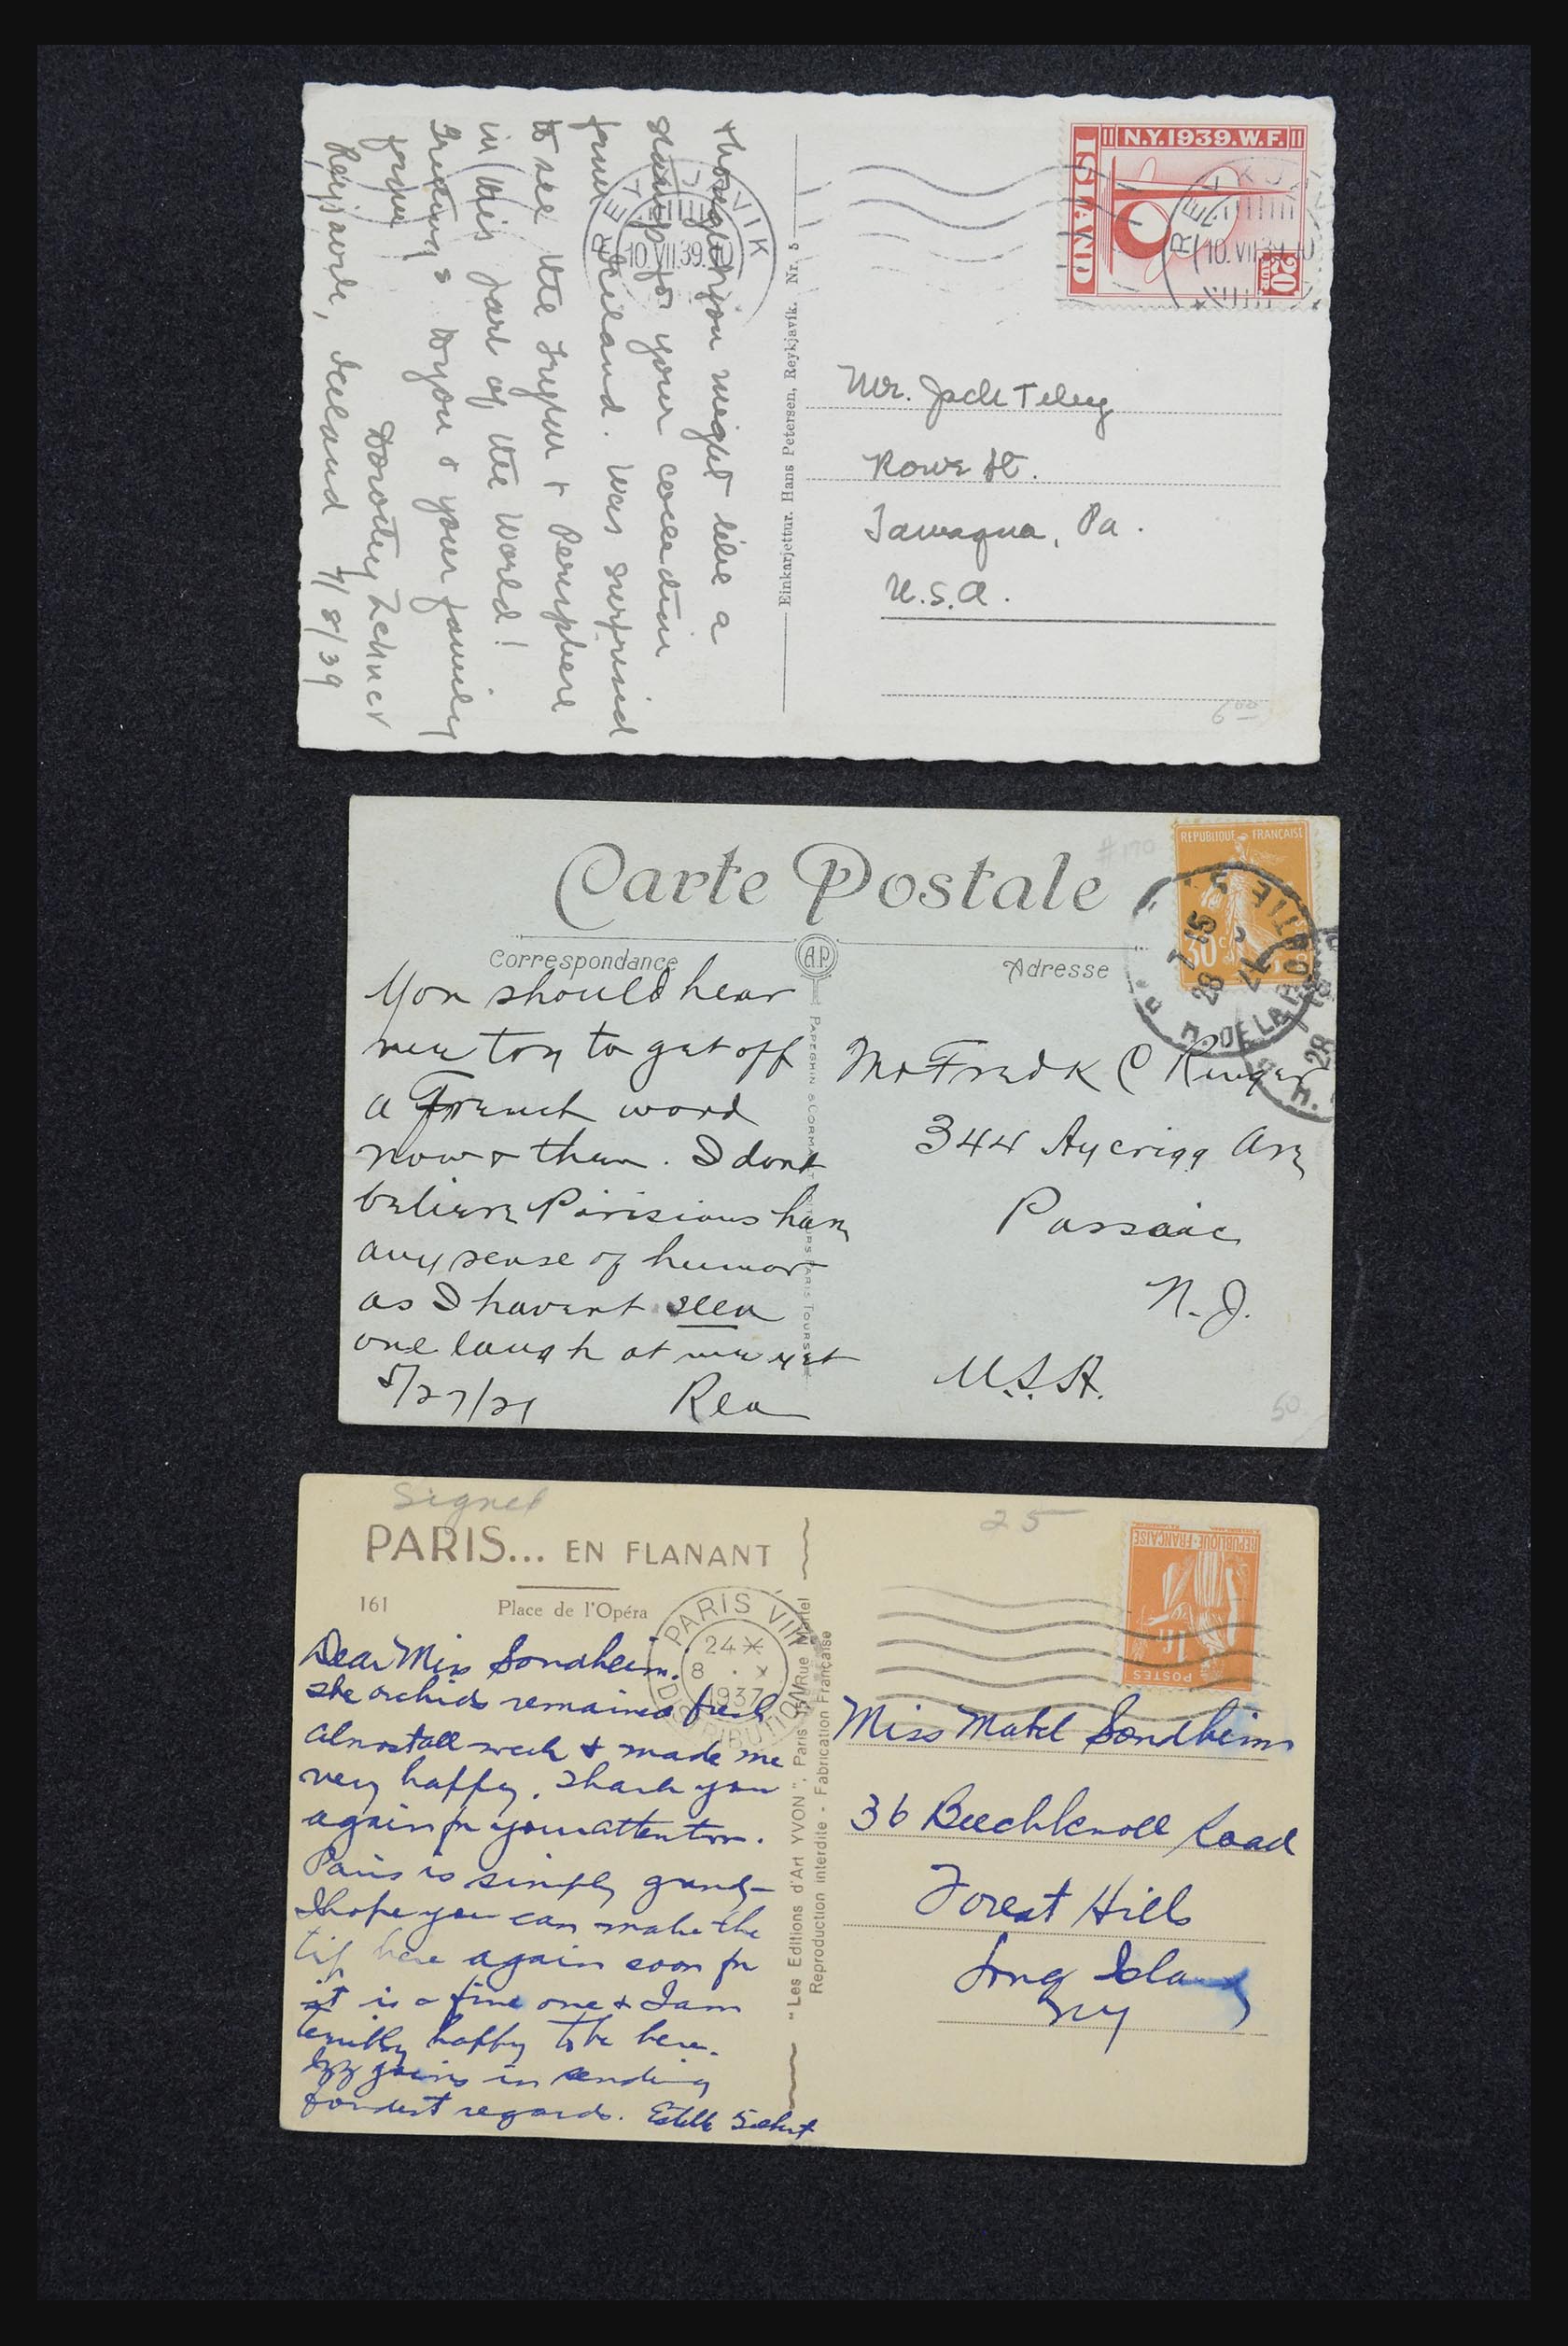 thought you might like a
stamp for your collection
from Iceland. Was surprised
to see the Trylon + Perisphere
in this part of the World!
Greetings to you & your family
from
Dorothy Zehner
Reykjavik, Iceland 7/8/39
REYKJAVIK
10.VII.39.
Einkarjettur. Hans Petersen, Reykjavík. Nr. 5
N.Y.1939.W.F.
ISLAND
20
AUR
REYKJAVIK
10.VII.39.
Mr. Jack
Rowe St.
Tamaqua, Pa.
U.S.A.
6 00
Carte Postale
#170
REPUBLIQUE FRANÇAISE
30c
7 15
28
Correspondance
A.P.
Adresse
You should hear
me try to get off
a French word
now & then. I dont
believe Pirisians have
any sense of humor
as I havent seen
one laugh at me yet
5/27/21 Rea
Mr Fredk C Ringer
344 Aycrigg Ave
Passaic
N.J.
U.S.A.
50
Signed
25
PARIS... EN FLANANT
161 Place de l'Opéra
PARIS VIII
24
8
1937
DISTRIBUTION
REPUBLIQUE·FRANÇAISE
1F
POSTES
Dear Miss Sondheim.
The orchids remained fresh
almost all week & made me
very happy. Thank you
again for your attention.
Paris is simply grand-
I hope you can make the
trip here again soon for
it is a fine one & I am
terribly happy to be here.
Izzy joins in sending
fondest regards. Estelle
"Les Editions d'Art YVON", Paris Rue Martel
Reproduction interdite - Fabrication Française
Miss Mabel Sondheim
36 Beechknoll Road
Forest Hills
Long Island
NY